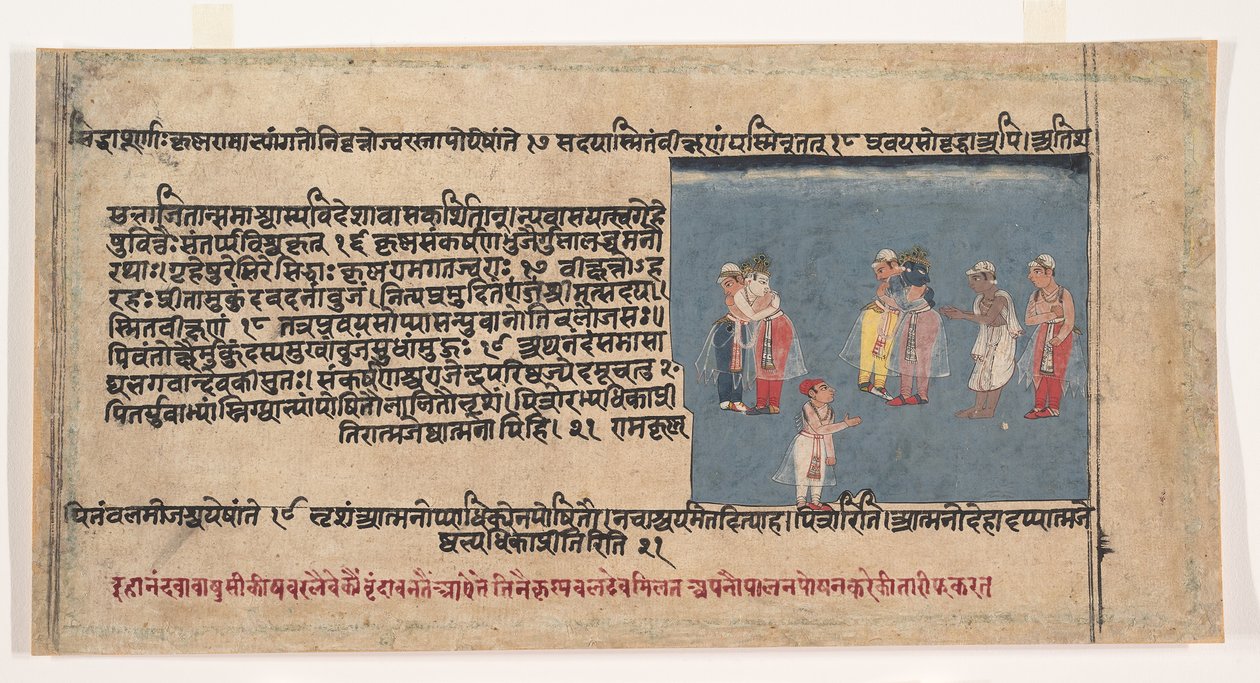 सिद्धाःपूर्णाः कृष्णरामाभ्यांगतोनिवृत्तोज्वरस्तापोयेषांते १७ सदयास्मितंवीक्षणंयस्मिंस्तत् १८ प्रवयसोवृद्धाअपि।अतिश
सभाजितान्समाश्वास्यविदेशावासकर्शितान्।न्यवासयत्स्वगेहे
षुवित्तैःसंतर्प्यविश्वकृत् १६ कृष्णसंकर्षणभुजैर्गुप्तालब्धमनो
रथाः।गृहेषुरेमिरेसिद्धाःकृष्णरामगतज्वराः १७ वीक्षन्तोऽह
रहःप्रीतामुकुंदवदनांबुजं।नित्यप्रमुदितंश्रीमत्सदय।
स्मितवीक्षणं १८ तत्रप्रवयसोप्यासन्युवानोतिबलौजसः॥
पिवंतोक्षैर्मुकुंदस्यमुखांबुजसुधांमुहुः १९ अथनंदंसमासा
द्यभगवान्देवकीसुतः।संकर्षणश्चराजेन्द्रपरिष्वज्येदमूचतुः २०
पितर्युवाभ्यांस्निग्धाभ्यांपोषितौलालितौभृशं।पित्रोरभ्यधिकाप्री
तिरात्मजेष्वात्मनोपिहि। २१ रामकृष्ण
यितंबलमोजश्चयेषांते १९ भृशंआत्मनोप्याधिक्येनपोषितौ।नचाश्चर्यमेतदित्याह।पित्रोरिति।आत्मनोदेहादप्यात्मजे
ष्वत्यधिकाप्रीतिरिति २१
वृंदावनतैंआयेते तिनैकृष्णबलदेवमिलत अपनौपालनपोषनकरेकीतारीफकरत